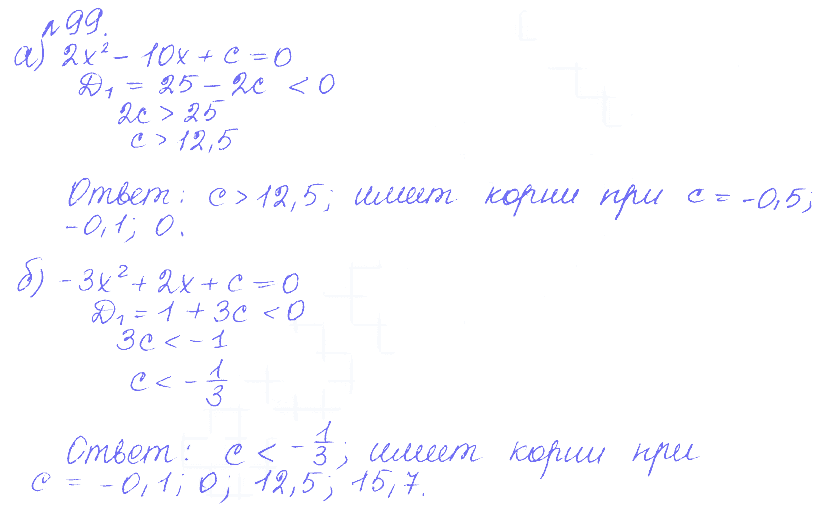 №99.
а) 2x² - 10x + c = 0
Д₁ = 25 - 2c < 0
2c > 25
c > 12,5
Ответ: c > 12,5; имеет корни при c = -0,5;
-0,1; 0.
б) -3x² + 2x + c = 0
Д₁ = 1 + 3c < 0
3c < -1
c < -1/3
Ответ: c < -1/3; имеет корни при
c = -0,1; 0; 12,5; 15,7.